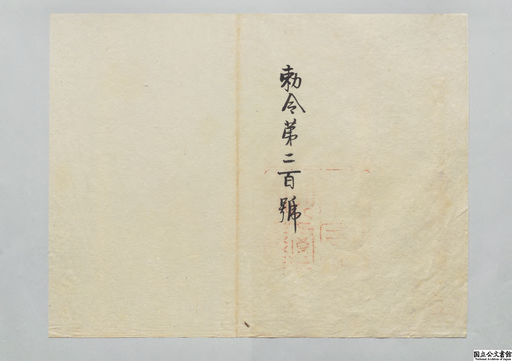 勅令第二百號
国立公文書館
National Archives of Japan